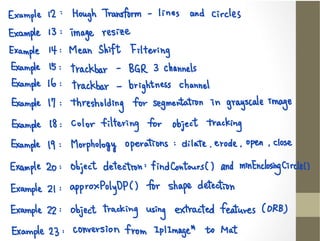 Example 12 : Hough Transform - lines and circles
Example 13 : image resize
Example 14 : Mean Shift Filtering
Example 15 : trackbar - BGR 3 channels
Example 16 : trackbar - brightness channel
Example 17 : thresholding for segmentation in grayscale image
Example 18 : Color filtering for object tracking
Example 19 : Morphology operations : dilate, erode, open, close
Example 20 : object detection : findContours() and minEnclosingCircle()
Example 21 : approxPolyDP() for shape detection
Example 22 : object tracking using extracted features (ORB)
Example 23 : conversion from IplImage* to Mat